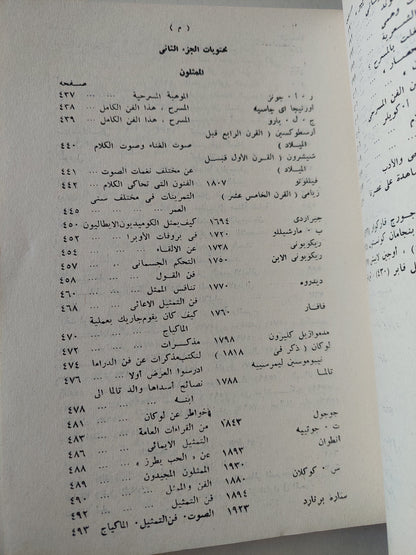 ( م )
محتويات الجزء الثانى
الممثلون
صفحة
ر ٠ أ ٠ جونز الموهبة المسرحية ... ... ٤٣٧
اورتيجا اى جاسيه المسرح ، هذا الفن الكامل ... ٤٣٨
ج ٠ ل ٠ بارو المسرح ، هذا الفن الكامل ... ٤٣٩
أرسطوكسين ( القرن الرابع قبل
الميلاد ) صوت الغناء وصوت الكلام ٤٤٠
شيشرون ( القرن الأول قبل
الميلاد ) عن مختلف نغمات الصوت ... ٤٤١
١٨٠٧ الفنون التى تحاكى الكلام ... ٤٤٢
( القرن الخامس عشر ) التمرينات فى مختلف سنى
العمر ... ... ... ٤٤٥
جيراردى ١٦٩٤ كيف يمثل الكوميديون الايطاليون ٤٥٠
ب ٠ مارشيللو ١٧٢٠ فى بروفات الأوبرا ... ٤٥٣
ريكوبونى ١٧٣٨ عن الالقاء ... ... ٤٥٤
ريكوبونى الابن ١٧٥٠ التحكم الجسمانى ... ... ٤٥٧
فن القول ... ... ٤٥٨
ديدروه ١٧٧٠ تنافس الممثل ... ... ٤٦٠
فن التمثيل الايمائى ... ... ٤٦٨
فافار ١٧٦٠ كيف كان يقوم جاريك بعملية
الماكياج ... ... ٤٧٠
مدموازيل كليرون ١٧٩٨ مذكرات ... ... ٤٧٢
لوكان ( ذكر فى ١٨١٨ ) لنكتب مذكرات عن فن الدراما ٤٧٤
نيبوموسين ليمرسييه ادرسوا العرض أولا ... ... ٤٧٦
تالما ١٧٨٨ نصائح أسداها والد تالما الى
ابنه ... ... ... ٤٧٨
خواطر عن لوكان ... ... ٤٨١
جوجول ١٨٤٣ من القراءات العامة ... ٤٨٣
ت ٠ جوتييه التمثيل الايمائى ... ... ٤٨٦
انطوان ١٨٩٣ عن « الحب يطرز » ... ٤٨٨
١٩٣٠ الممثلون المجيدون ... ... ٤٨٩
س ٠ كوكلان ١٨٨٠ الفن والممثل ... ... ٤٩٠
١٨٩٤ فن التمثيل ... ... ٤٩٢
سارة برنارد ١٩٢٣ الصوت ٠ فن التمثيل ٠ الماكياج ٤٩٣